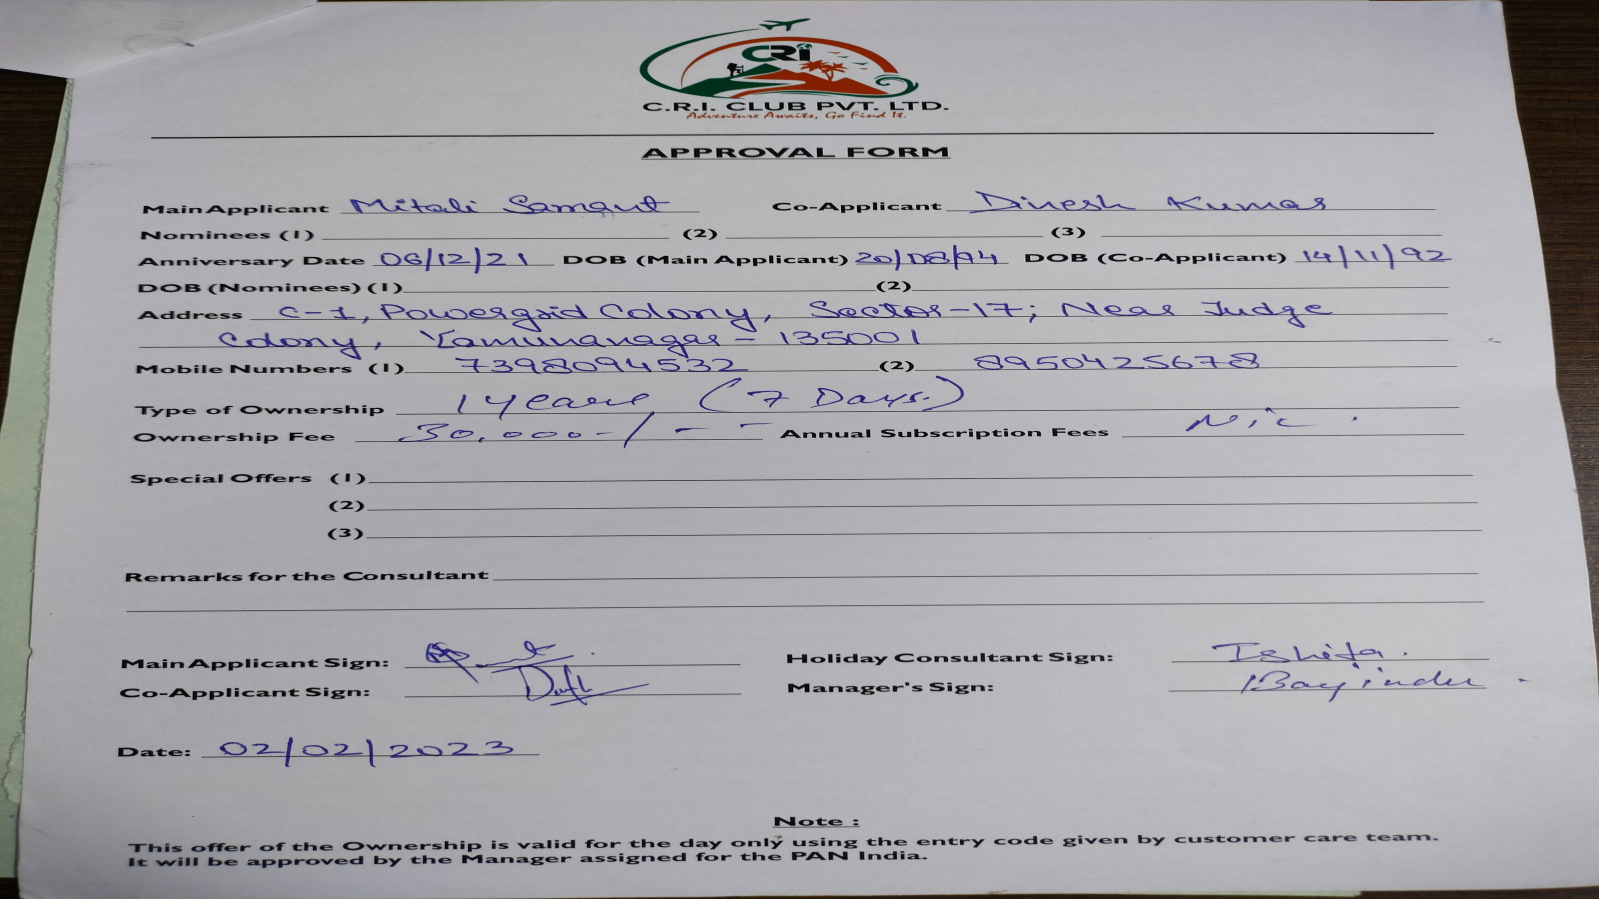 CRi
C.R.I. CLUB PVT. LTD.
Adventure Awaits, Go Find It.
APPROVAL FORM
Main Applicant Mitali Samant Co-Applicant Dinesh Kumar
Nominees (1) (2) (3)
Anniversary Date 06/12/21 DOB (Main Applicant) 20/08/94 DOB (Co-Applicant) 14/11/92
DOB (Nominees) (1) (2)
Address C-1, Powergrid Colony, Sector-17; Near Judge
Colony, Yamunanagar - 135001
Mobile Numbers (1) 7398094532 (2) 8950425678
Type of Ownership 1 years (7 Days.)
Ownership Fee 30,000-/ - - Annual Subscription Fees Nil.
Special Offers (1)
(2)
(3)
Remarks for the Consultant
Main Applicant Sign: Holiday Consultant Sign: Ishita.
Co-Applicant Sign: Manager's Sign:
Date: 02/02/2023
Note :
This offer of the Ownership is valid for the day only using the entry code given by customer care team.
It will be approved by the Manager assigned for the PAN India.